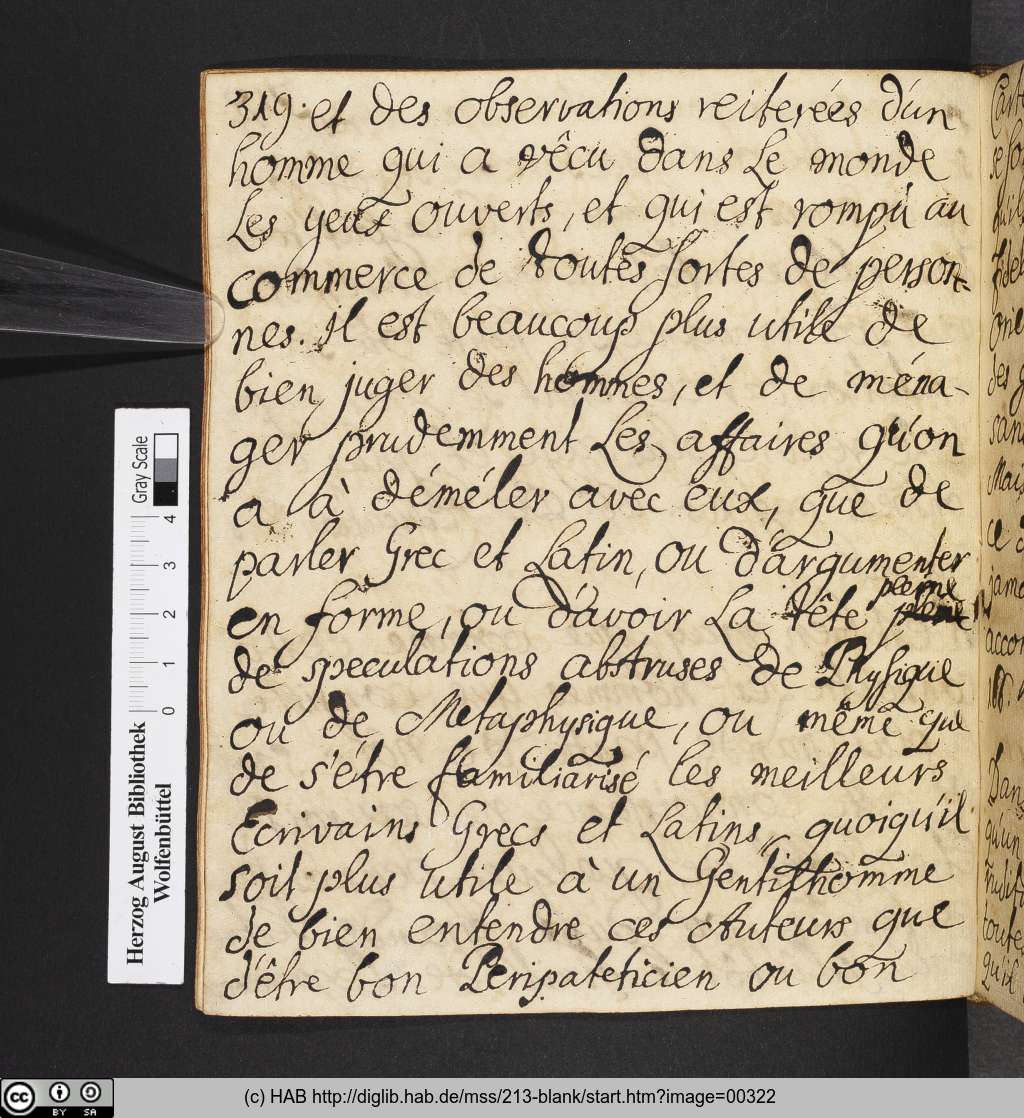 319. et des observations reiterées d'un
homme qui a vêcu dans Le monde
Les yeux ouverts, et qui est rompu au
commerce de toutes sortes de person-
nes. il est beaucoup plus utile de
bien juger des hommes, et de ména-
ger prudemment Les affaires qu'on
a à déméler avec eux, que de
parler Grec et Latin, ou d'argumenter
pleine
en forme, ou d'avoir La tête
de speculations abstruses de Physique
ou de Metaphysique, ou même que
de s'étre familiarisé les meilleurs
Ecrivains Grecs et Latins, quoiqu'il
soit plus utile à un Gentilhomme
de bien entendre ces Auteurs que
d'être bon Peripateticien ou bon
Herzog August Bibliothek
Wolfenbüttel
Gray Scale
0 1 2 3 4
cc BY SA
(c) HAB http://diglib.hab.de/mss/213-blank/start.htm?image=00322